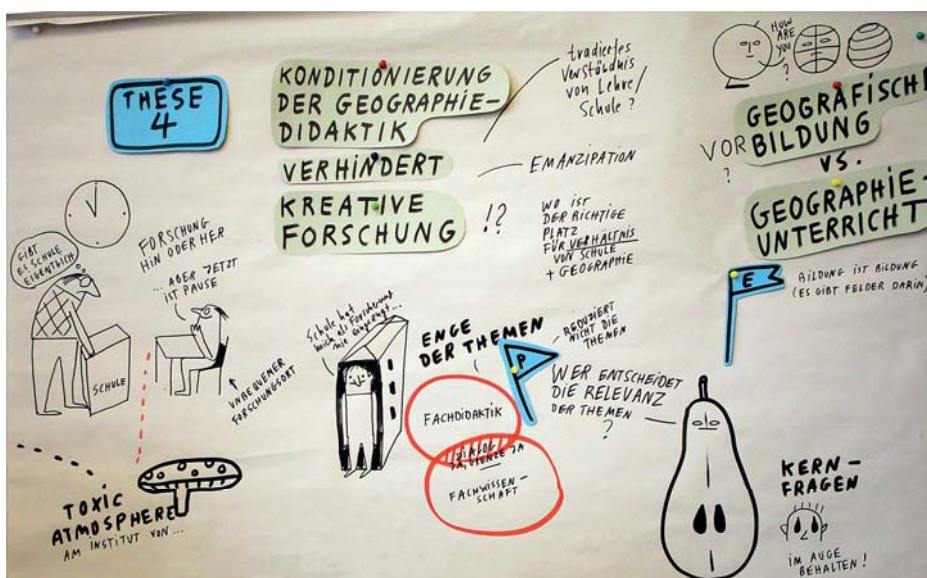 THESE
4
KONDITIONIERUNG
DER GEOGRAPHIE-
DIDAKTIK
VERHINDERT
KREATIVE
FORSCHUNG
!?
tradiertes
Verständnis
von Lehre/
Schule?
EMANZIPATION
WO IST
DER RICHTIGE
PLATZ
FÜR VERHÄLTNIS
VON SCHULE
+ GEOGRAPHIE
HOW
ARE
YOU
?
GEOGRAFISCHE
VOR BILDUNG
?
VS.
GEOGRAPHIE-
UNTERRICHT
E
BILDUNG IST BILDUNG
(ES GIBT FELDER DARIN)
GIBT
ES SCHULE
EIGENTLICH
SCHULE
FORSCHUNG
HIN ODER HER
... ABER JETZT
IST PAUSE
UNBEQUEMER
FORSCHUNGSORT
TOXIC
ATMOSPHERE
AM INSTITUT VON ...
Schule hat
mich als Forscherung
nie eingeengt...
ENGE
DER THEMEN
P
REDUZIERT
NICHT DIE
THEMEN
FACHDIDAKTIK
DIALOG
JA, GRENZE JA
FACHWISSEN-
SCHAFT
WER ENTSCHEIDET
DIE RELEVANZ
DER THEMEN
?
KERN-
FRAGEN
IM AUGE
BEHALTEN!